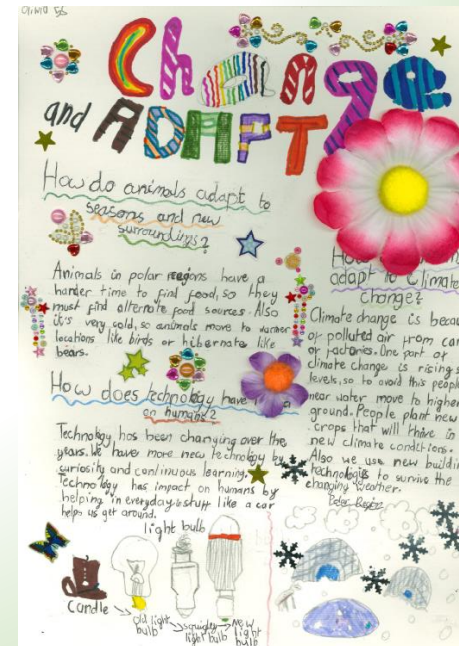 Olivia 5b
Change
and ADAPT
How do animals adapt to
seasons and new
surroundings?
Animals in polar regions have a
harder time to find food, so they
must find alternate food sources. Also
it's very cold, so animals move to warmer
locations like birds or hibernate like
bears.
How does technology have
on humans?
Technology has been changing over the
years. We have more new technology by
curiosity and continuous learning.
Technology has impact on humans by
helping in everyday stuff like a car
helps us get around.
How
adapt to Climate
Change?
Climate change is
of polluted air from
or factories. One part of
climate change is rising
levels, so to avoid this people
near water move to higher
ground. People plant new
crops that will thrive in
new climate conditions.
Also we use new
technologies to survive the
changing weather.
light bulb
candle
old light
bulb
squigly
light bulb
new
light
bulb
Polar Region